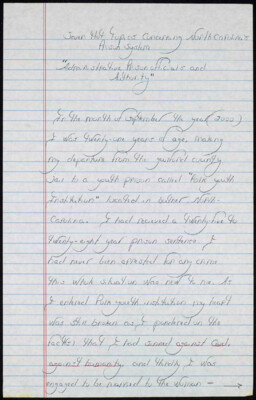 Seven Hot Topics Concerning North Carolina's
Prison System
"Administrative Prison Officials and
Authority"
In the month of September the year 2002,
I was twenty-one years of age, making
my departure from the county
Jail to a youth prison called "Polk youth
Institution" located in North
Carolina. I had received a twenty-two to
twenty-eight year prison sentence, I
had never been arrested for any crime
this whole situation was new to me. As
I entered Polk youth institution my heart
was still broken as, I pondered on the
factors that I had sinned against God,
against humanity and thirdly I was
engaged to be married to the woman